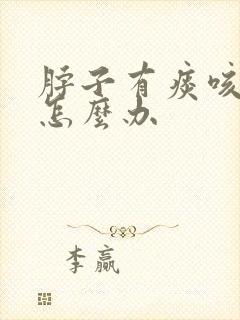 脖子有痰咳
怎麼办
李赢